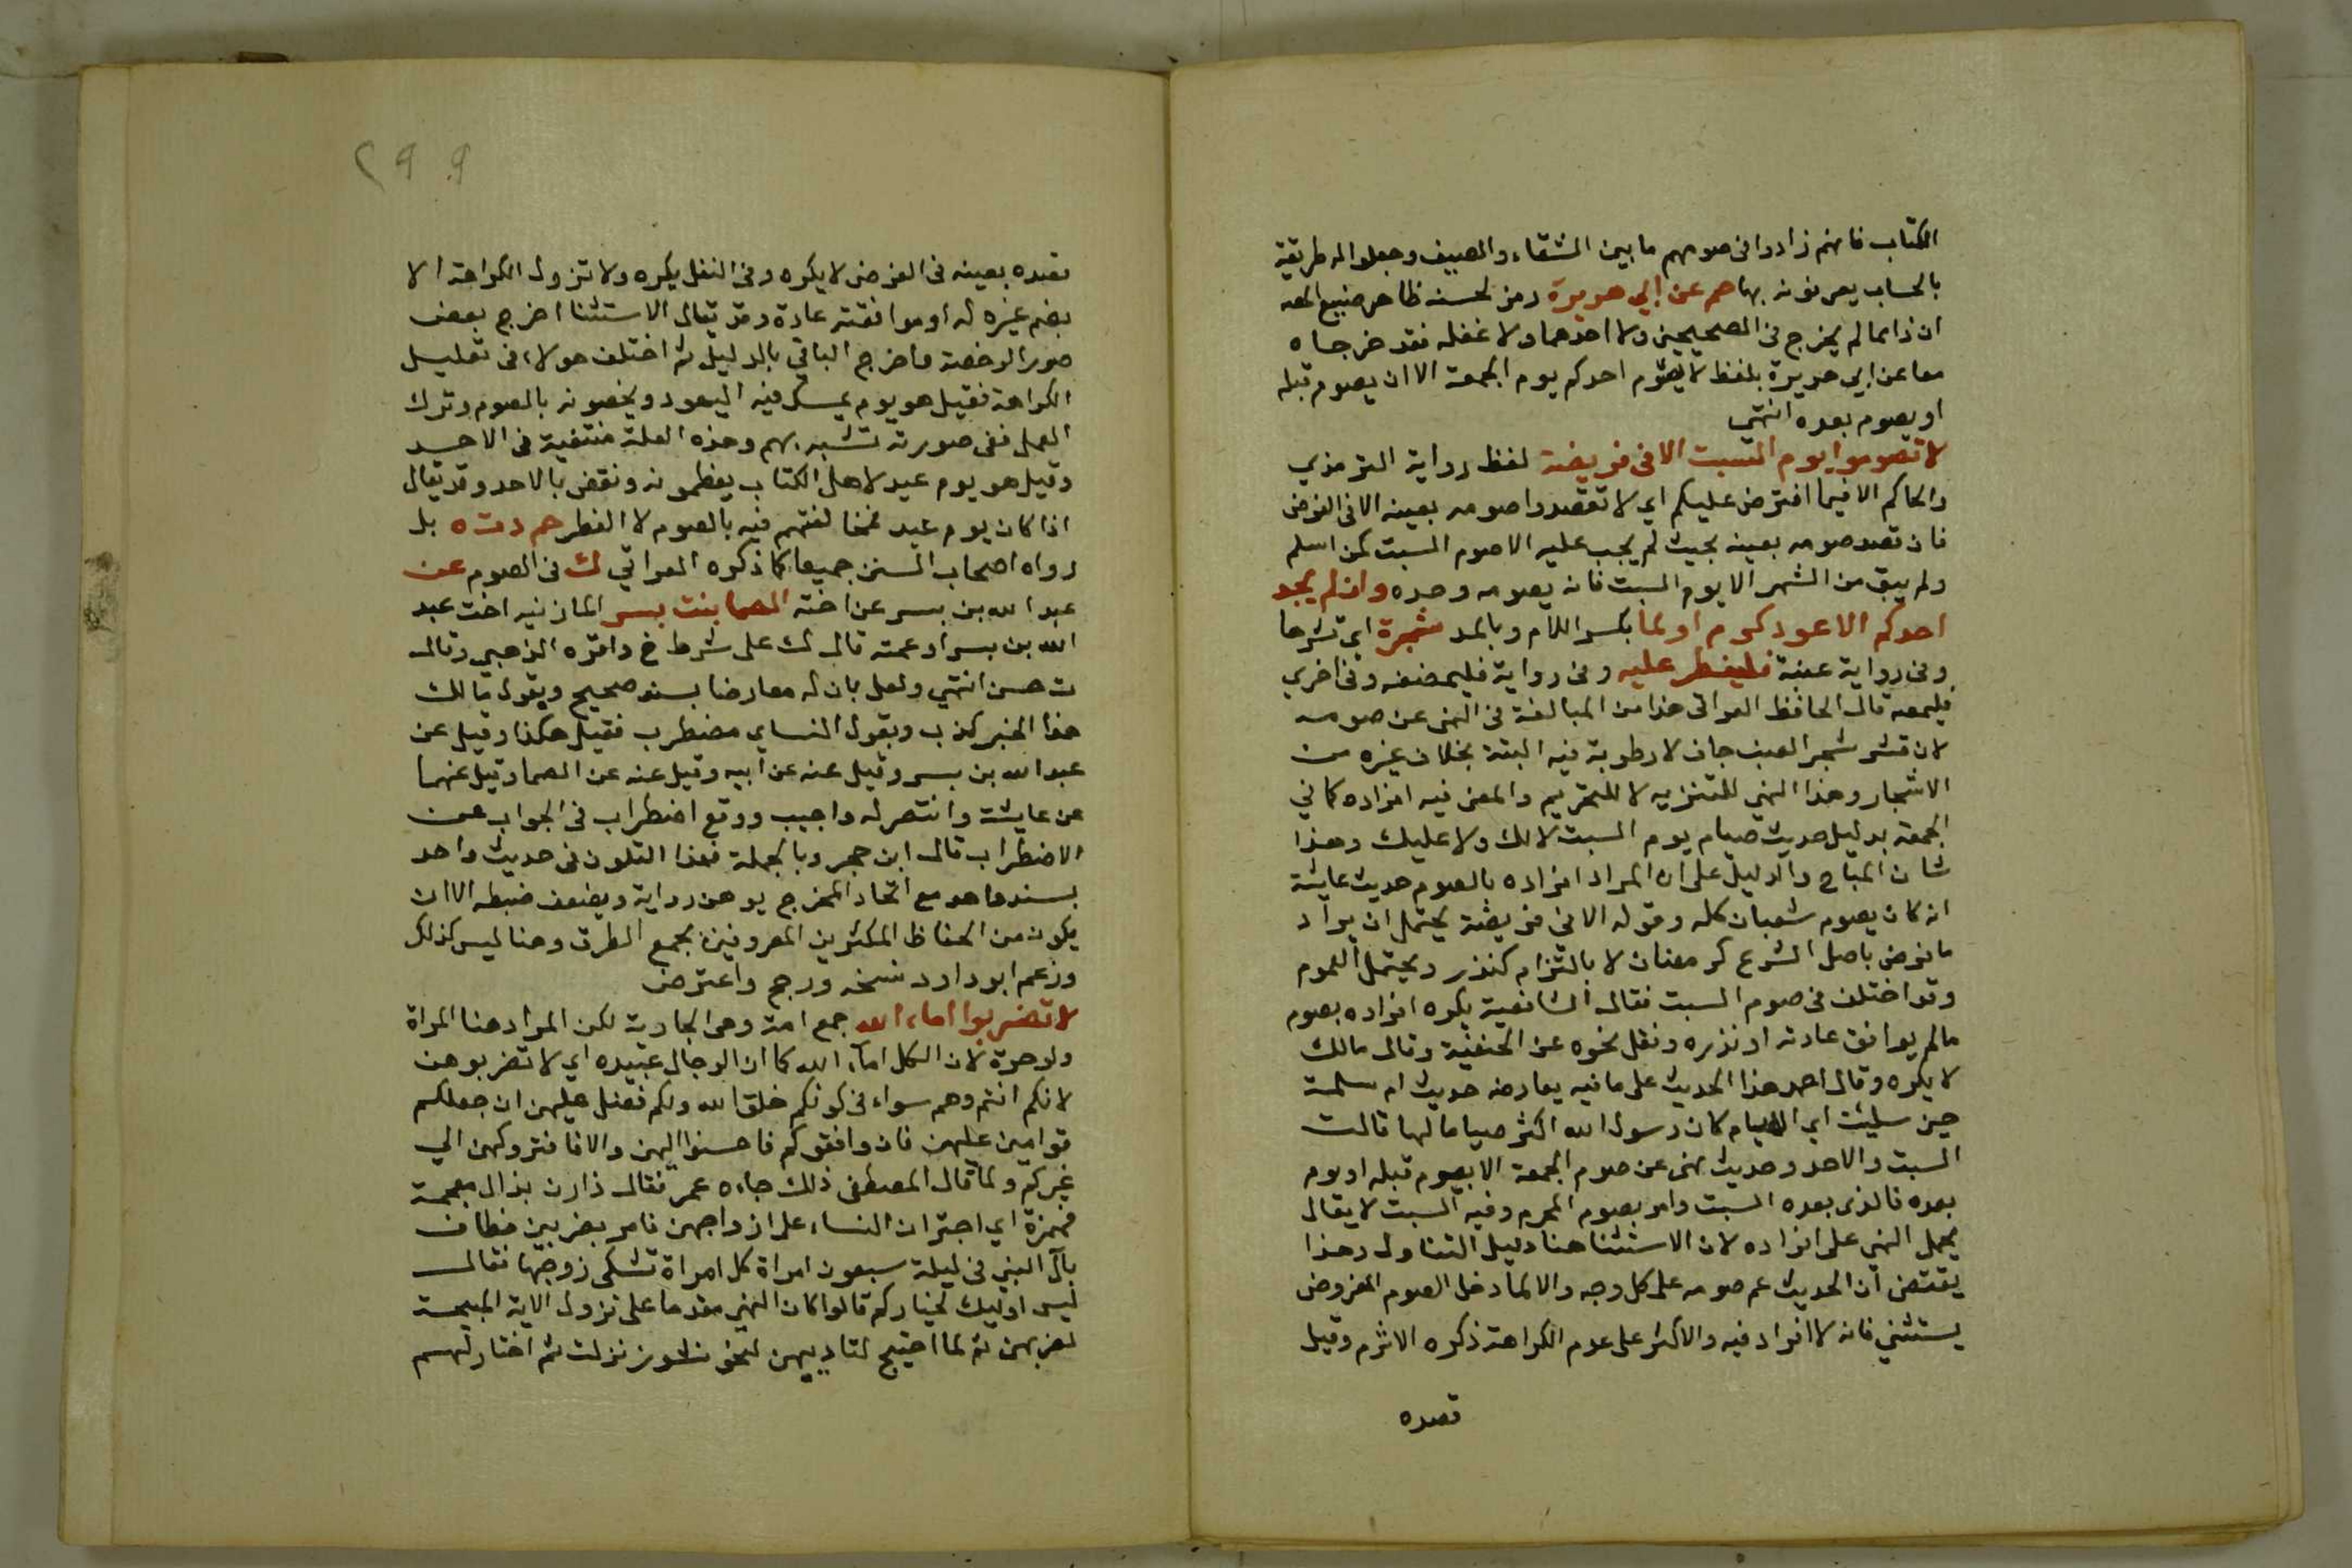 الكتاب فانهم زادوا فى صومهم ما بين الشتاء والصيف وجعلوا له طريقة
بالحساب يعرفونه بها حم عن ابي هريرة رمز لحسنه ظاهر صنيع المصه
ان ذا مما لم يخرج فى الصحيحين ولا احدهما ولا غفله فقد خرجاه
معا عن ابي هريرة بلفظ لا يصوم احدكم يوم الجمعة الا ان يصوم قبله
او يصوم بعده انتهى
لا تصوموا يوم السبت الا فى فريضة لفظ رواية الترمذي
والحاكم الا فيما افترض عليكم اي لا تقصدوا صومه بعينه الا فى الفرض
فان قصد صومه بعينه بحيث لم يجب عليه الا صوم السبت كمن اسلم
ولم يبق من الشهر الا يوم السبت فانه يصومه وحده وان لم يجد
احدكم الا عود كرم او لحا بكسر اللام وبالمد شجرة اي قشرها
وفى رواية عنبة فليفطر عليه وفى رواية فليمضغه وفى اخري
فليمصه قال الحافظ العراقى هذا من المبالغة فى النهى عن صومه
لان قشر شجر العنب جاف لا رطوبة فيه البتة بخلاف غيره من
الاشجار وهذا النهي للتنزيه لا للتحريم والمعنى فيه افراده كما في
الجمعة بدليل حديث صيام يوم السبت لا لك ولا عليك وهذا
شان المباح والدليل على ان المراد افراده بالصوم حديث عايشة
انه كان يصوم شعبان كله وقوله الا فى فريضة يحتمل ان يراد
ما فرض باصل الشرع كرمضان لا بالتزام كنذر ويحتمل العموم
وقد اختلف فى صوم السبت فقال الشافعية يكره افراده بصوم
ما لم يوافق عادته او نذره ونقل نحوه عن الحنفية وقال مالك
لا يكره وقال احمد هذا الحديث على ما فيه يعارضه حديث ام سلمة
حين سئلت اي الايام كان رسول الله اكثر صياما لها قالت
السبت والاحد وحديث نهى عن صوم الجمعة الا بصوم قبله او يوم
بعده فالذى بعده السبت وامر بصوم المحرم وفيه السبت لا يقال
يحمل النهي على افراده لان الاستثنا هنا دليل التناول وهذا
يقتضى ان الحديث عم صومه على كل وجه والا لما دخل الصوم المفروض
يستثني فانه لا افراد فيه والاكثر على عدم الكراهة ذكره الاثرم وقيل
قصده
٢٩٩
قصده بعينه فى الفرض لا يكره وفى النفل يكره ولا تزول الكراهة الا
بضم غيره له او موافقته عادة وقد يقال الاستثنا اخرج بعض
صور الرخصة واخرج الباقي بالدليل ثم اختلف هولاء فى تعليل
الكراهة فقيل هو يوم يمسك فيه اليهود ويخصونه بالصوم وترك
العمل ففى صورته تشبه بهم وهذه العلة منتفية فى الاحد
وقيل هو يوم عيد لاهل الكتاب يعظمونه ونقض بالاحد وقد يقال
اذا كان يوم عيد فمخالفتهم فيه بالصوم لا الفطر حم د ت ه بل
رواه اصحاب السنن جميعا كما ذكره العراقي ك فى الصوم عن
عبد الله بن بسر عن اخته الصما بنت بسر المازنيه اخت عبد
الله بن بسر او عمته قال ك على شرط خ واقره الذهبي وقال
ت حسن انتهي واعل بان له معارضا بسند صحيح وبقول مالك
هذا الخبر كذب وبقول النساي مضطرب فقيل هكذا وقيل عن
عبد الله بن بسر وقيل عنه عن ابيه وقيل عنه عن الصما وقيل عنهما
عن عايشة وانتصر له واجيب ووقع اضطراب فى الجواب عن
الاضطراب قال ابن حجر وبالجملة فهذا التلون فى حديث واحد
بسند واحد مع اتحاد المخرج يوهن رواية ويضعف ضبطه الا ان
يكون من الحفاظ المكثرين المعروفين بجمع الطرق وهنا ليس كذلك
وزعم ابو داود نسخه ورجح واعترض
لا تضربوا اماء الله جمع امة وهى الجارية لكن المراد هنا المراة
ولو حرة لان الكل اماء الله كما ان الرجال عبيده اي لا تضربوهن
لانكم انتم وهم سواء فى كونكم خلق الله ولكم فضل عليهن ان جعلكم
قوامين عليهن فان وافقوكم فاحسنوا اليهن والا فاتركوهن الي
غيركم ولما قال المصطفى ذلك جاءه عمر فقال ذارن بذال معجمة
فهمزة اي اجتران النساء على ازواجهن فامر بضربهن فطاف
بال النبي فى ليلة سبعون امراة كل امراة تشكى زوجها فقال
ليس اوليك بخياركم قالوا كان النهي مقدما على نزول الاية المبيحة
لضربهن ثم لما احتيج لتاديبهن لنحو نشوز نزلت ثم اختار لهم